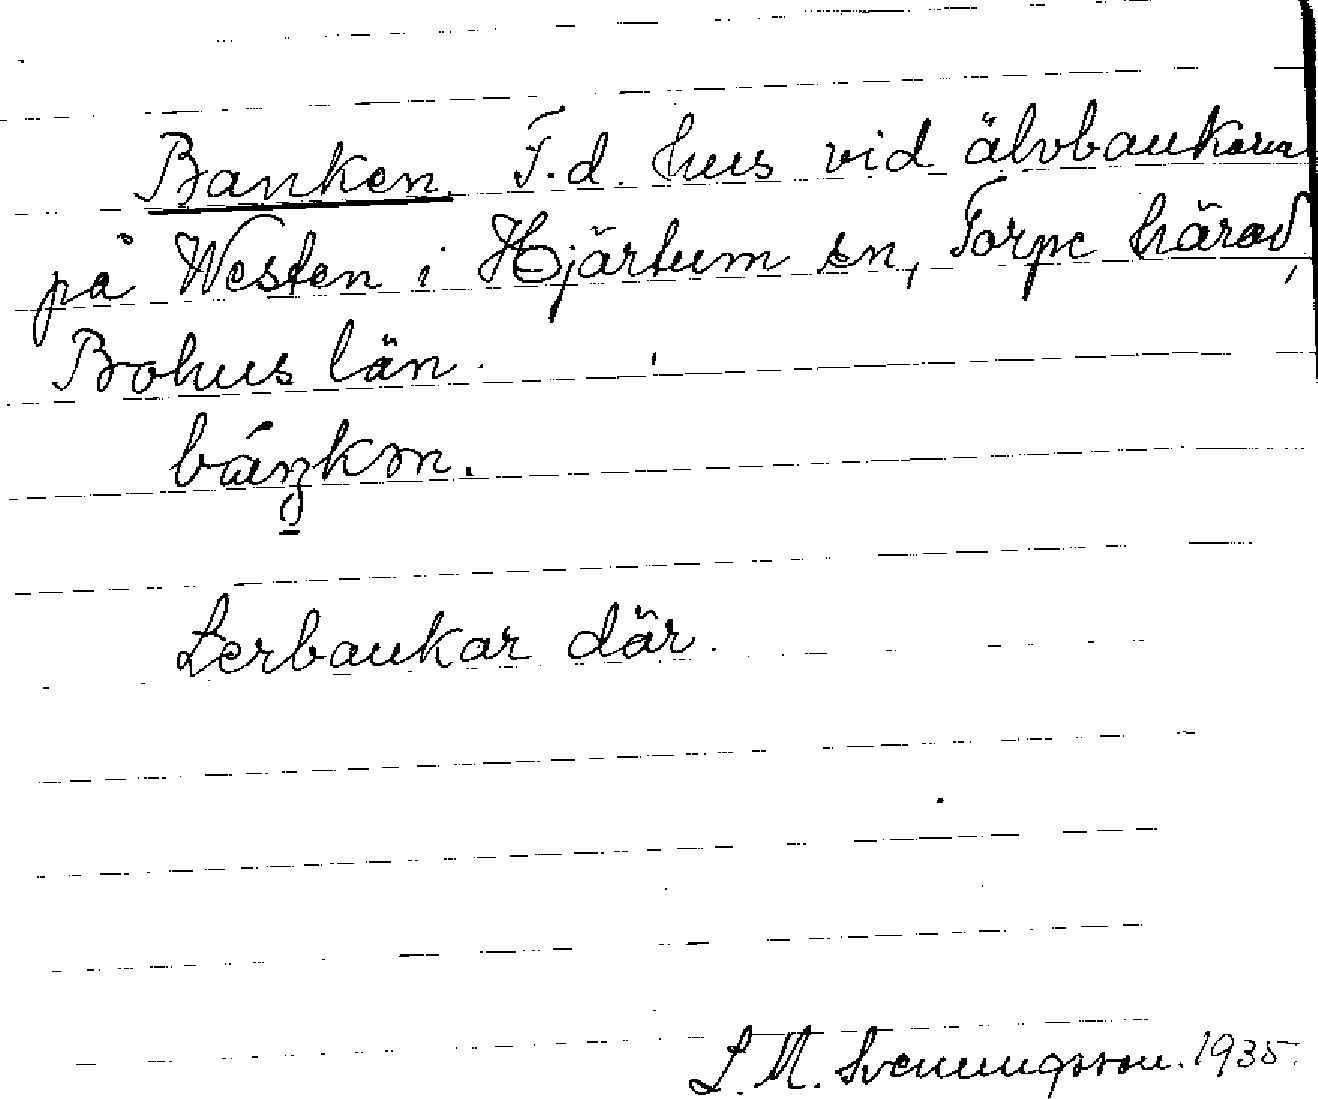 Banken. F.d. hus vid älvbankarna
på Westen i Hjärtum sn, Torpe härad,
Bohus län.
Lerbankar där.
S. M. Svenungsson. 1935.